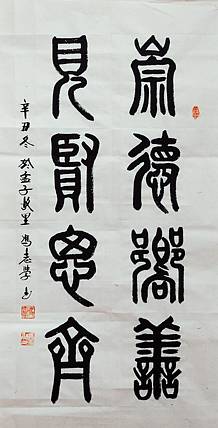 崇德嚮善
見賢思齊
辛丑冬 於孟子故里 馮志學書